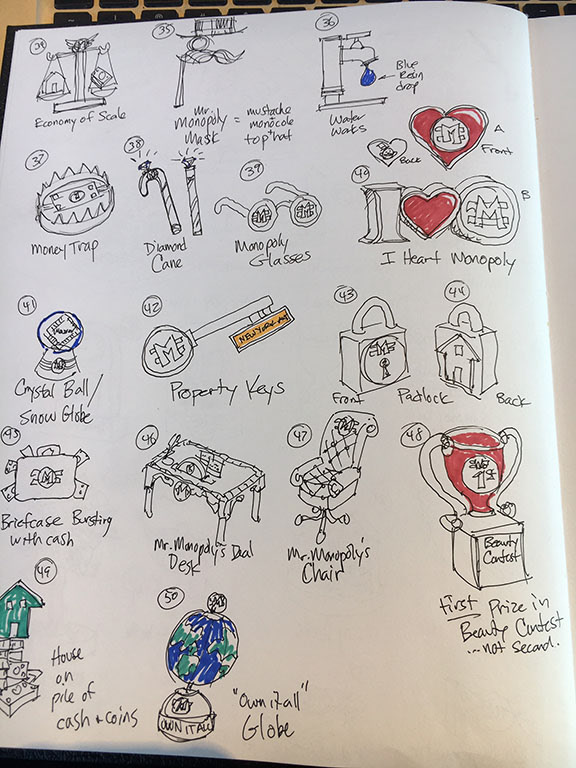 34
Economy of Scale
35
Mr. Monopoly Mask = mustache monocle top hat
36
Blue Resin drop
Water Works
37
Money Trap
38
Diamond Cane
39
M
M
Monopoly Glasses
40
M
A
Front
Back
I M
B
I Heart Monopoly
41
Crystal Ball/
Snow Globe
42
M
NEW YORK AV
Property Keys
43
M
Front
Padlock
44
Back
45
M
Briefcase Bursting
with cash
46
Mr. Monopoly's Deal
Desk
47
M
Mr. Monopoly's
Chair
48
1st
Beauty
Contest
First Prize in
Beauty Contest
...not second.
49
House
on
pile of
cash + coins
50
M
OWN IT ALL
"Own it all"
Globe